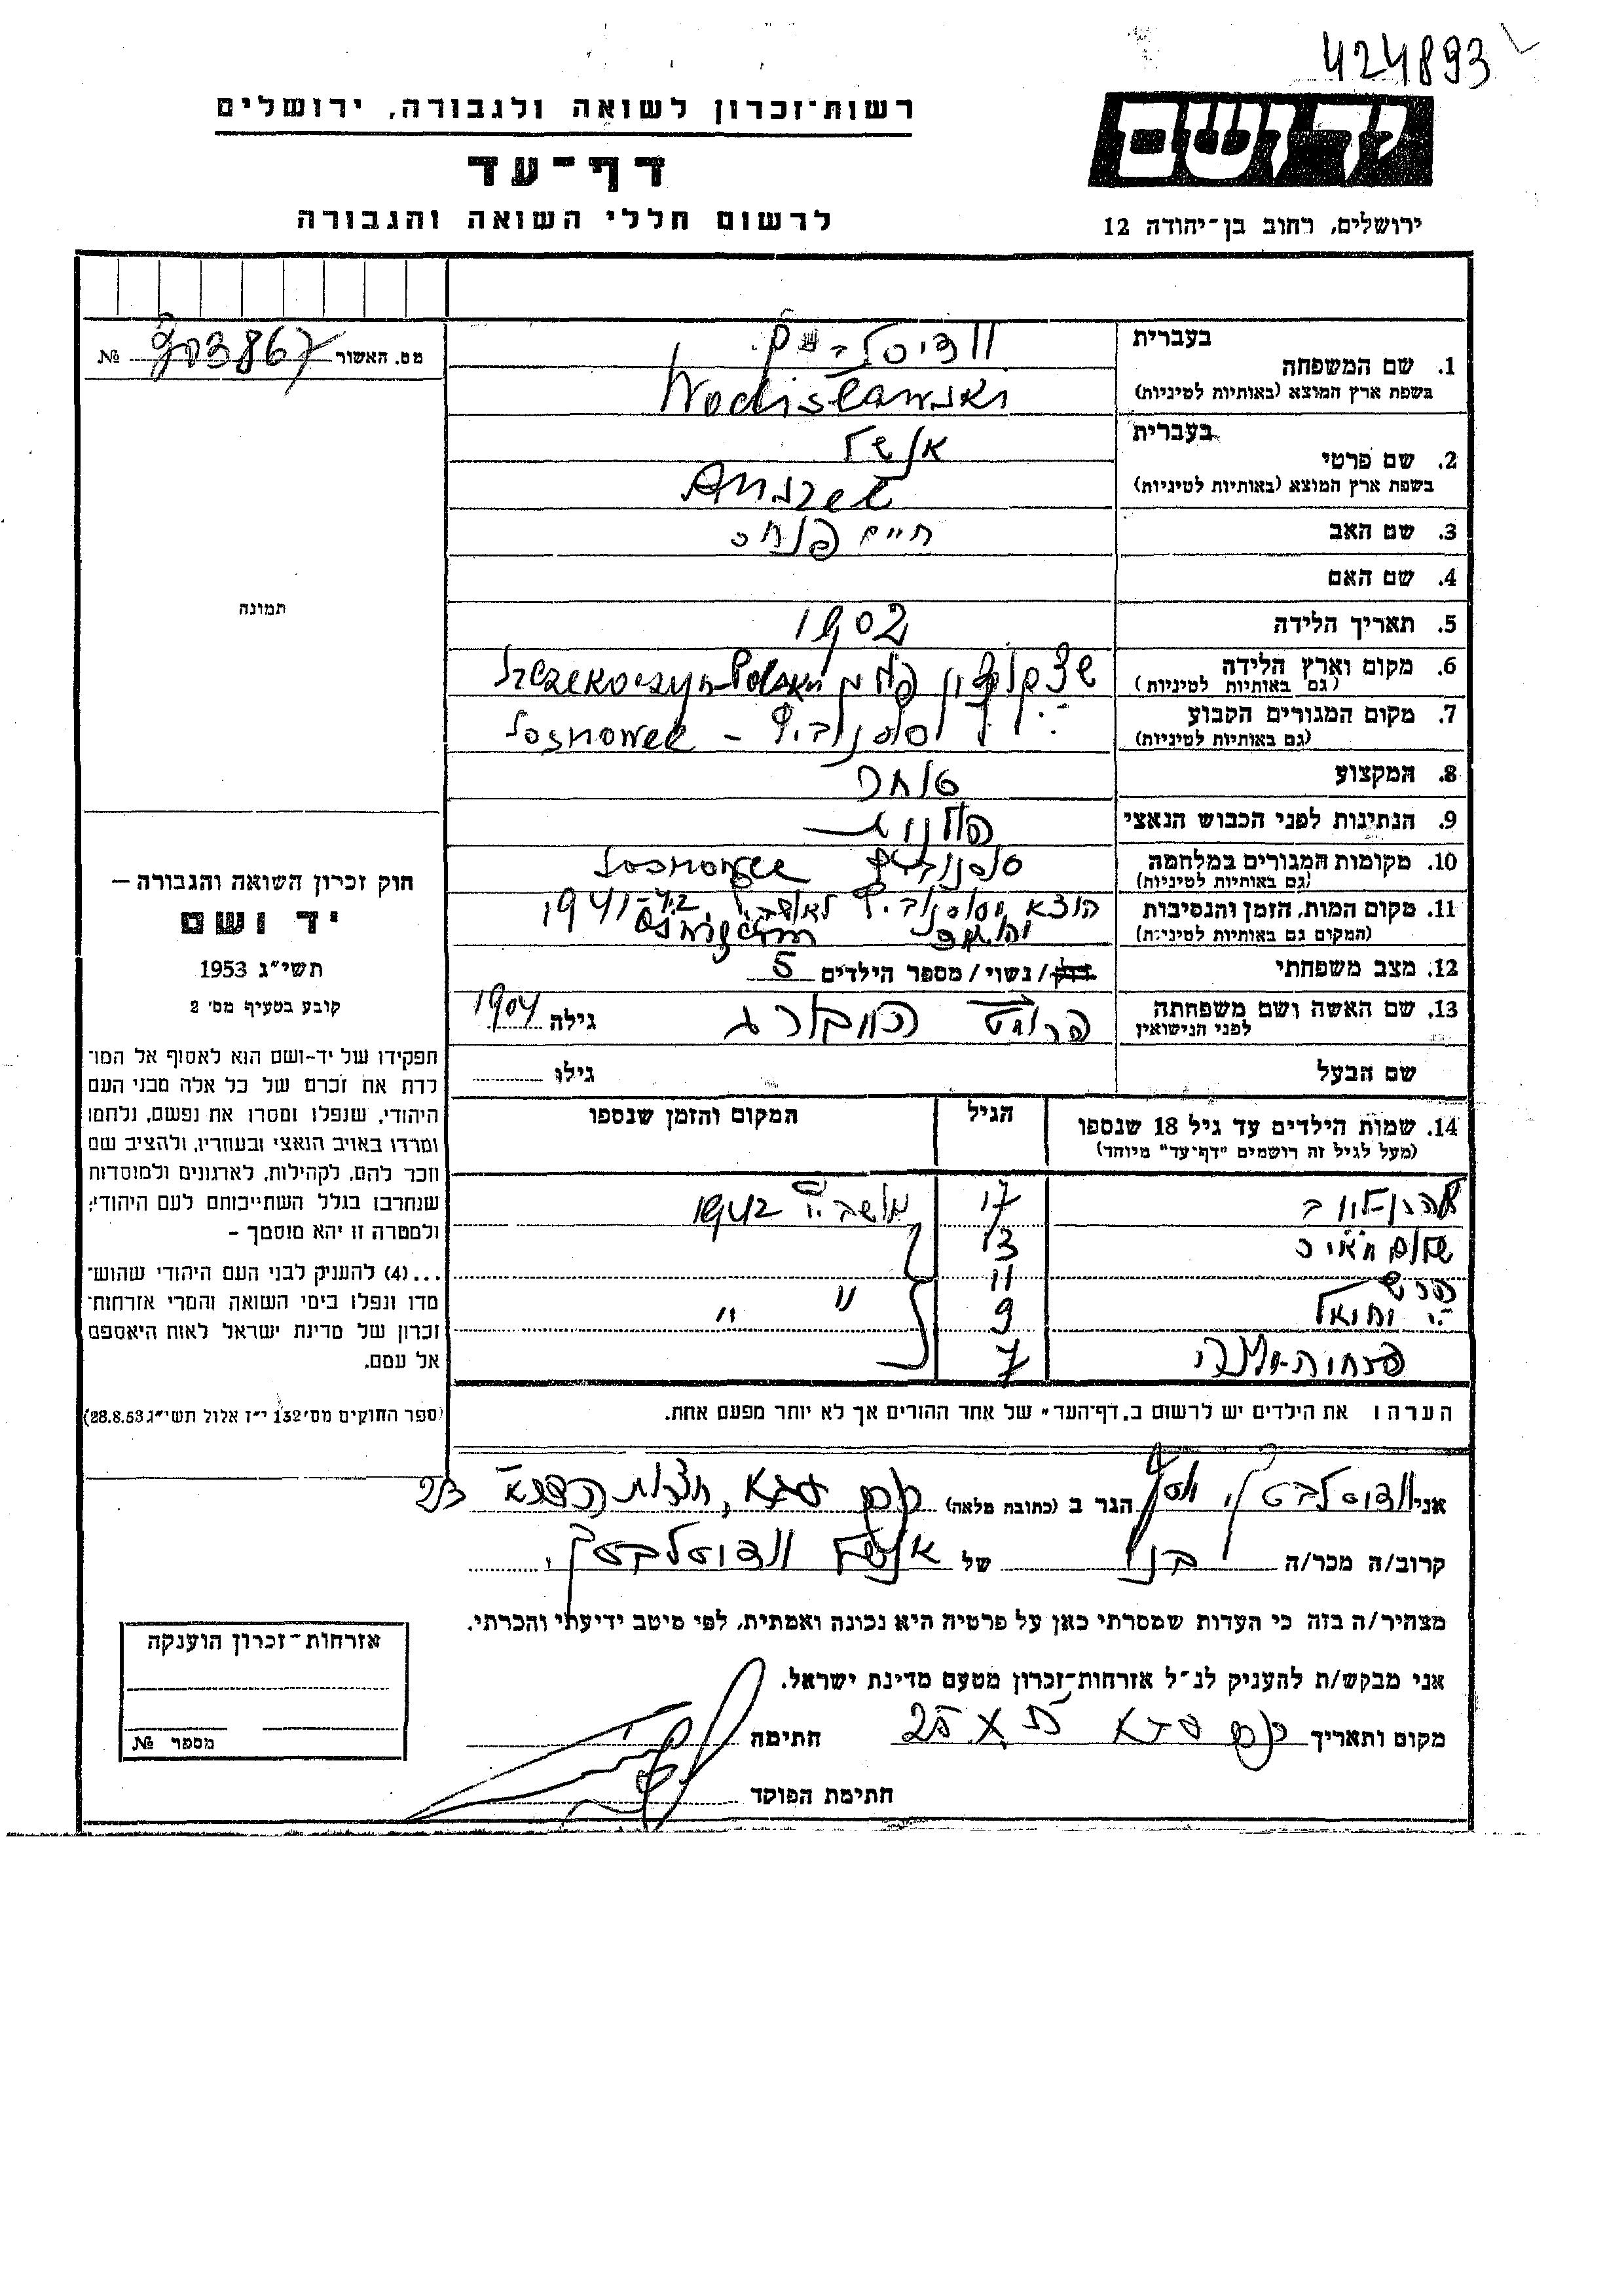 424893
רשות־זכרון לשואה ולגבורה, ירושלים
ידושם
דף־עד
לרשום חללי השואה והגבורה
ירושלים, רחוב בן־יהודה 12
בעברית
1. שם המשפחה
בשפת ארץ המוצא (באותיות לטיניות)
Wodisławski
מס. האשור 903867 №
בעברית
2. שם פרטי
בשפת ארץ המוצא (באותיות לטיניות)
אנשל
Anszel
3. שם האב חיים פנחס
4. שם האם
תמונה
5. תאריך הלידה 1902
6. מקום וארץ הלידה
(גם באותיות לטיניות)
פולין
7. מקום המגורים הקבוע
(גם באותיות לטיניות)
סוסנוביץ - Sosnowec
8. המקצוע סוחר
9. הנתינות לפני הכבוש הנאצי פולנית
10. מקומות המגורים במלחמה
(גם באותיות לטיניות)
סוסנוביץ Sosnowec
11. מקום המות, הזמן והנסיבות
(המקום גם באותיות לטיניות)
הוצא מסוסנוביץ לאושביץ 1941-42
12. מצב משפחתי רווק/ נשוי/ מספר הילדים 5
13. שם האשה ושם משפחתה
לפני הנישואין
גילה 1904
שם הבעל גילו
14. שמות הילדים עד גיל 18 שנספו
(מעל לגיל זה רושמים "דף־עד" מיוחד)
הגיל
המקום והזמן שנספו
17 אושביץ 1942
שלום 13
הרש 11
9 " "
7
הערה: את הילדים יש לרשום ב"דף־העד" של אחד ההורים אך לא יותר מפעם אחת.
חוק זכרון השואה והגבורה —
יד ושם
תשי״ג 1953
קובע בסעיף מס׳ 2
תפקידו של יד-ושם הוא לאסוף אל המו־
לדת את זכרם של כל אלה מבני העם
היהודי, שנפלו ומסרו את נפשם, נלחמו
ומרדו באויב הנאצי ובעוזריו, ולהציב שם
וזכר להם, לקהילות, לארגונים ולמוסדות
שנחרבו בגלל השתייכותם לעם היהודי;
ולמטרה זו יהא מוסמך –
...(4) להעניק לבני העם היהודי שהוש־
מדו ונפלו בימי השואה והמרי אזרחות־
זכרון של מדינת ישראל לאות היאספם
אל עמם.
(ספר החוקים מס׳ 132 י״ז אלול תשי״ג 28.8.53)
אני יוסף הגר ב (כתובת מלאה) כפר סבא,
קרוב/ה מכר/ה בנו של אנשל וודיסלבסקי
מצהיר/ה בזה כי העדות שמסרתי כאן על פרטיה היא נכונה ואמתית, לפי מיטב ידיעתי והכרתי.
אני מבקש/ת להעניק לנ״ל אזרחות־זכרון מטעם מדינת ישראל.
מקום ותאריך כפר סבא 25 X 55 חתימה
חתימת הפוקד
אזרחות־זכרון הוענקה
מספר №